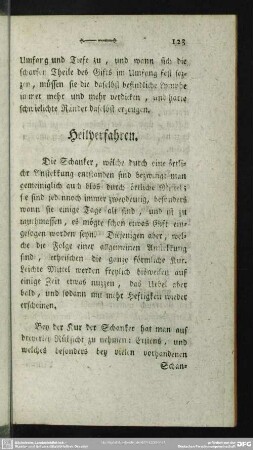 123
Umfang und Tiefe zu, und wann sich die
scharfen Theile des Gifts im Umfang fest set-
zen, müssen sie die daselbst befindliche Lymphe
immer mehr und mehr verdicken, und harte
schwielichte Ränder daselbst erzeugen.
Heilverfahren.
Die Schanker, welche durch eine örtli-
che Ansteckung entstanden sind bezwingt man
gemeiniglich auch blos durch örtliche Mittel;
so sind jedennoch immer zweydeutig, besonders
wann sie einige Tage alt sind, und ist zu
muthmassen, es mögte schon etwas Gift ein-
gesogen worden seyn. Diejenigen aber, wel-
che die Folge einer allgemeinen Ansteckung
sind, erheischen die ganze förmliche Kur.
Leichte Mittel werden freylich bisweilen auf
einige Zeit etwas nuzzen, das Uebel aber
bald, und sodann mit mehr Heftigkeit wieder
erscheinen.
Bey der Kur der Schanker hat man auf
dreyerley Rüksicht zu nehmen: Erstens, und
welches besonders bey vielen vorhandenen
Schan-